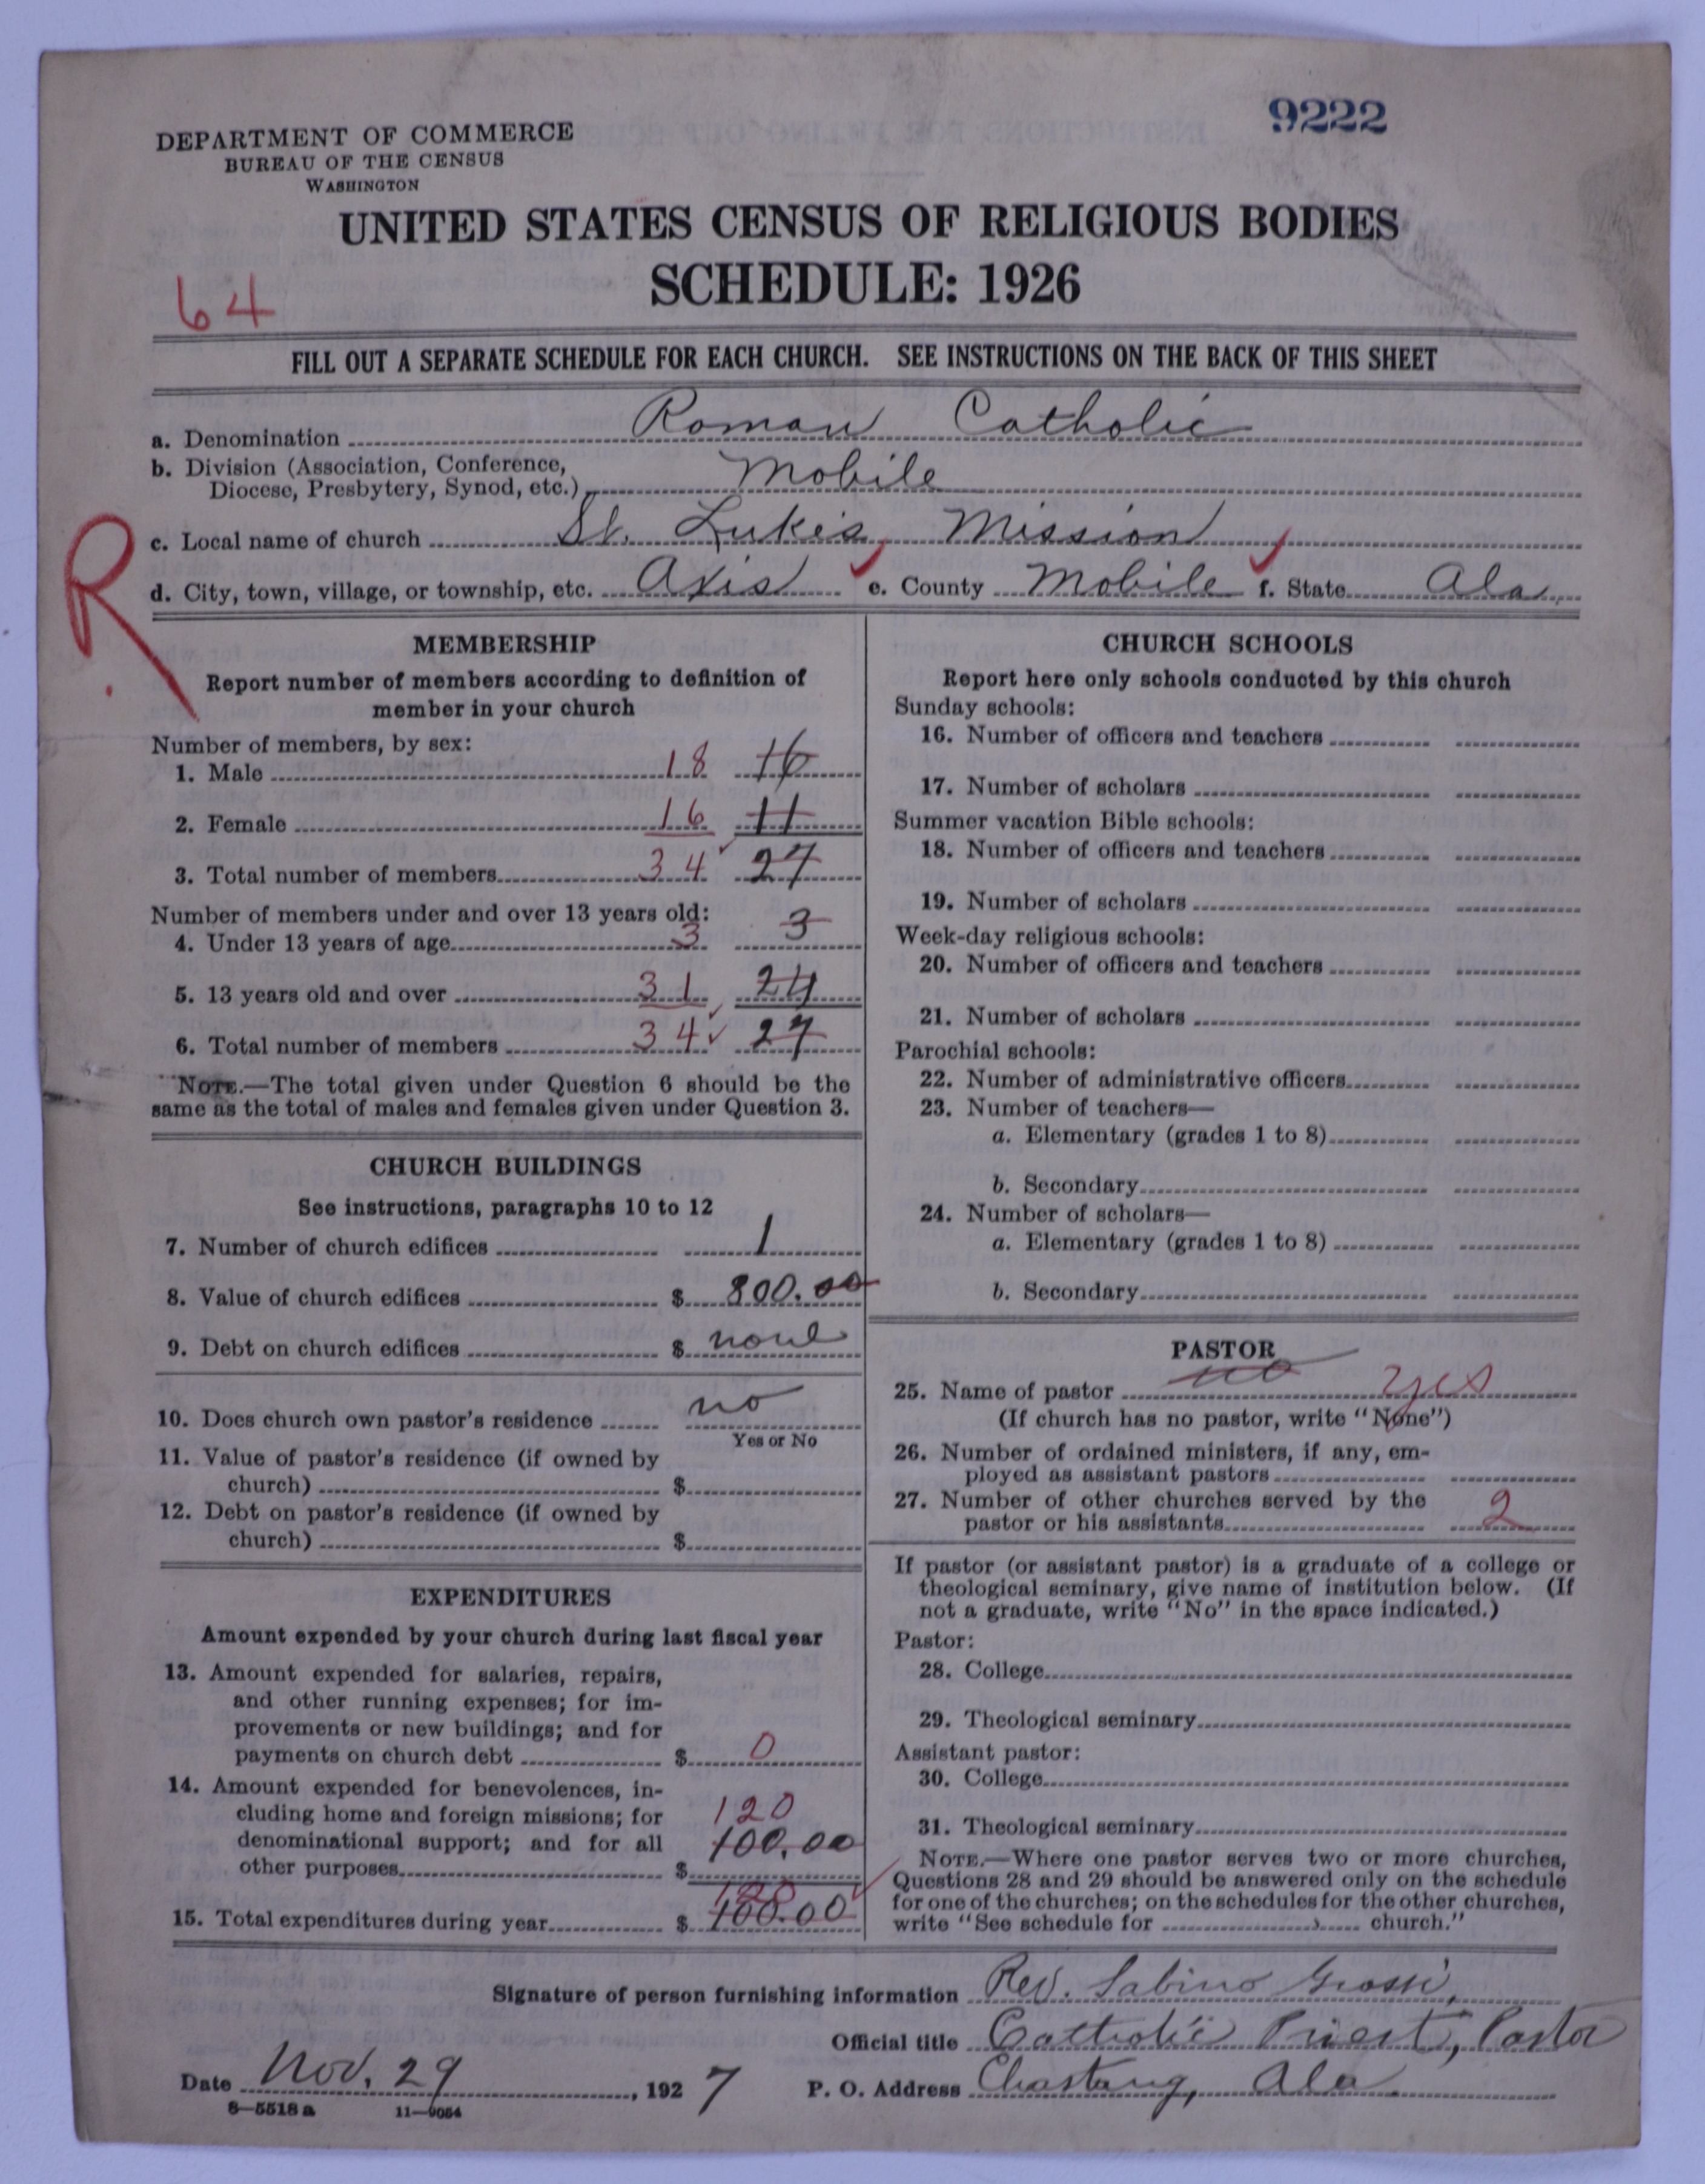 9222
DEPARTMENT OF COMMERCE
BUREAU OF THE CENSUS
WASHINGTON
UNITED STATES CENSUS OF RELIGIOUS BODIES
SCHEDULE: 1926
64
FILL OUT A SEPARATE SCHEDULE FOR EACH CHURCH. SEE INSTRUCTIONS ON THE BACK OF THIS SHEET
a. Denomination Roman Catholic
b. Division (Association, Conference,
Diocese, Presbytery, Synod, etc.) Mobile
c. Local name of church St. Luke's Mission
R
d. City, town, village, or township, etc. Axis e. County Mobile f. State Ala.
MEMBERSHIP
Report number of members according to definition of
member in your church
Number of members, by sex:
1. Male 18 16
2. Female 16 11
3. Total number of members 34 27
Number of members under and over 13 years old:
4. Under 13 years of age 3 3
5. 13 years old and over 31 24
6. Total number of members 34 27
NOTE.—The total given under Question 6 should be the
same as the total of males and females given under Question 3.
CHURCH BUILDINGS
See instructions, paragraphs 10 to 12
7. Number of church edifices 1
8. Value of church edifices $ 800.00
9. Debt on church edifices $ none
10. Does church own pastor's residence no
Yes or No
11. Value of pastor's residence (if owned by
church) $
12. Debt on pastor's residence (if owned by
church) $
EXPENDITURES
Amount expended by your church during last fiscal year
13. Amount expended for salaries, repairs,
and other running expenses; for im-
provements or new buildings; and for
payments on church debt $ 0
14. Amount expended for benevolences, in-
cluding home and foreign missions; for 120
denominational support; and for all 100.00
other purposes $
120
15. Total expenditures during year $ 100.00
CHURCH SCHOOLS
Report here only schools conducted by this church
Sunday schools:
16. Number of officers and teachers
17. Number of scholars
Summer vacation Bible schools:
18. Number of officers and teachers
19. Number of scholars
Week-day religious schools:
20. Number of officers and teachers
21. Number of scholars
Parochial schools:
22. Number of administrative officers
23. Number of teachers—
a. Elementary (grades 1 to 8)
b. Secondary
24. Number of scholars—
a. Elementary (grades 1 to 8)
b. Secondary
PASTOR
25. Name of pastor no yes
(If church has no pastor, write "None")
26. Number of ordained ministers, if any, em-
ployed as assistant pastors
27. Number of other churches served by the
pastor or his assistants 2
If pastor (or assistant pastor) is a graduate of a college or
theological seminary, give name of institution below. (If
not a graduate, write "No" in the space indicated.)
Pastor:
28. College
29. Theological seminary
Assistant pastor:
30. College
31. Theological seminary
NOTE.—Where one pastor serves two or more churches,
Questions 28 and 29 should be answered only on the schedule
for one of the churches; on the schedules for the other churches,
write "See schedule for church."
Signature of person furnishing information Rev. Sabino Grossi,
Official title Catholic Priest, Pastor
Date Nov. 29, 1927 P. O. Address Chastang, Ala.
8—5518a 11—9054